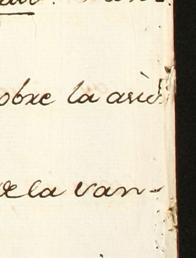 obre la arid
de la van-